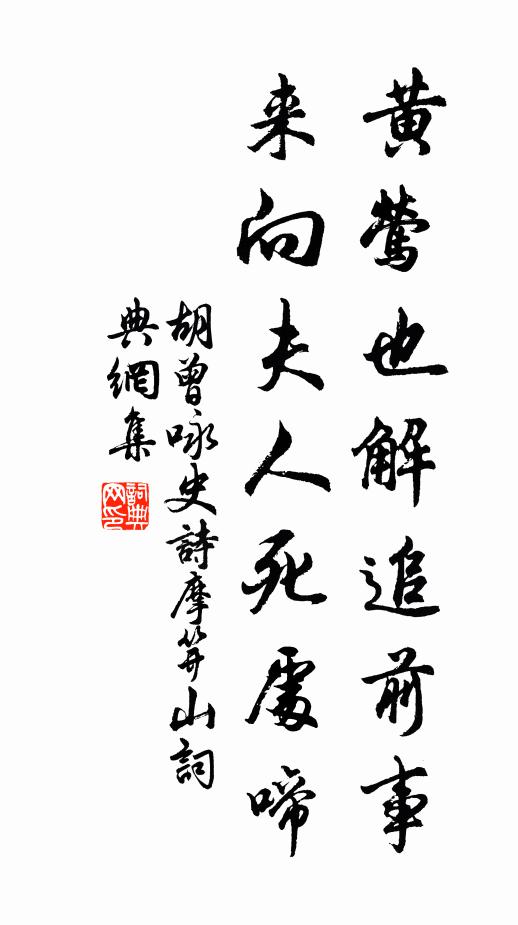 黄鶯也解追前事
来向夫人死處啼
胡曾咏史詩摩笄山詞
典網集
詞典网印